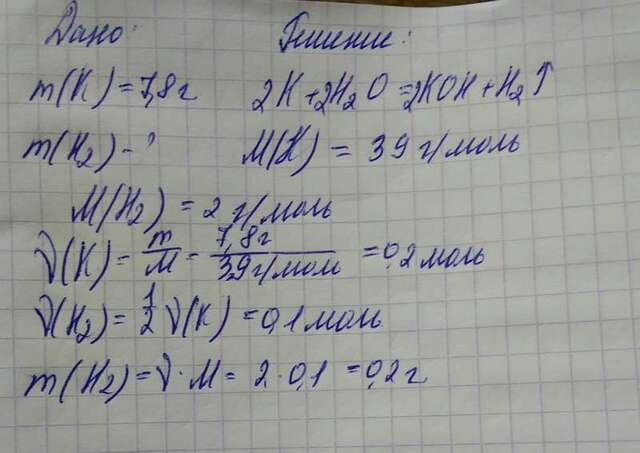 Дано: Решение:
m(K) = 7,8 г 2K + 2H₂O = 2KOH + H₂↑
m(H₂) - ? M(K) = 39 г/моль
M(H₂) = 2 г/моль
ν(K) = m/M = 7,8 г/39 г/моль = 0,2 моль
ν(H₂) = 1/2 ν(K) = 0,1 моль
m(H₂) = ν · M = 2 · 0,1 = 0,2 г